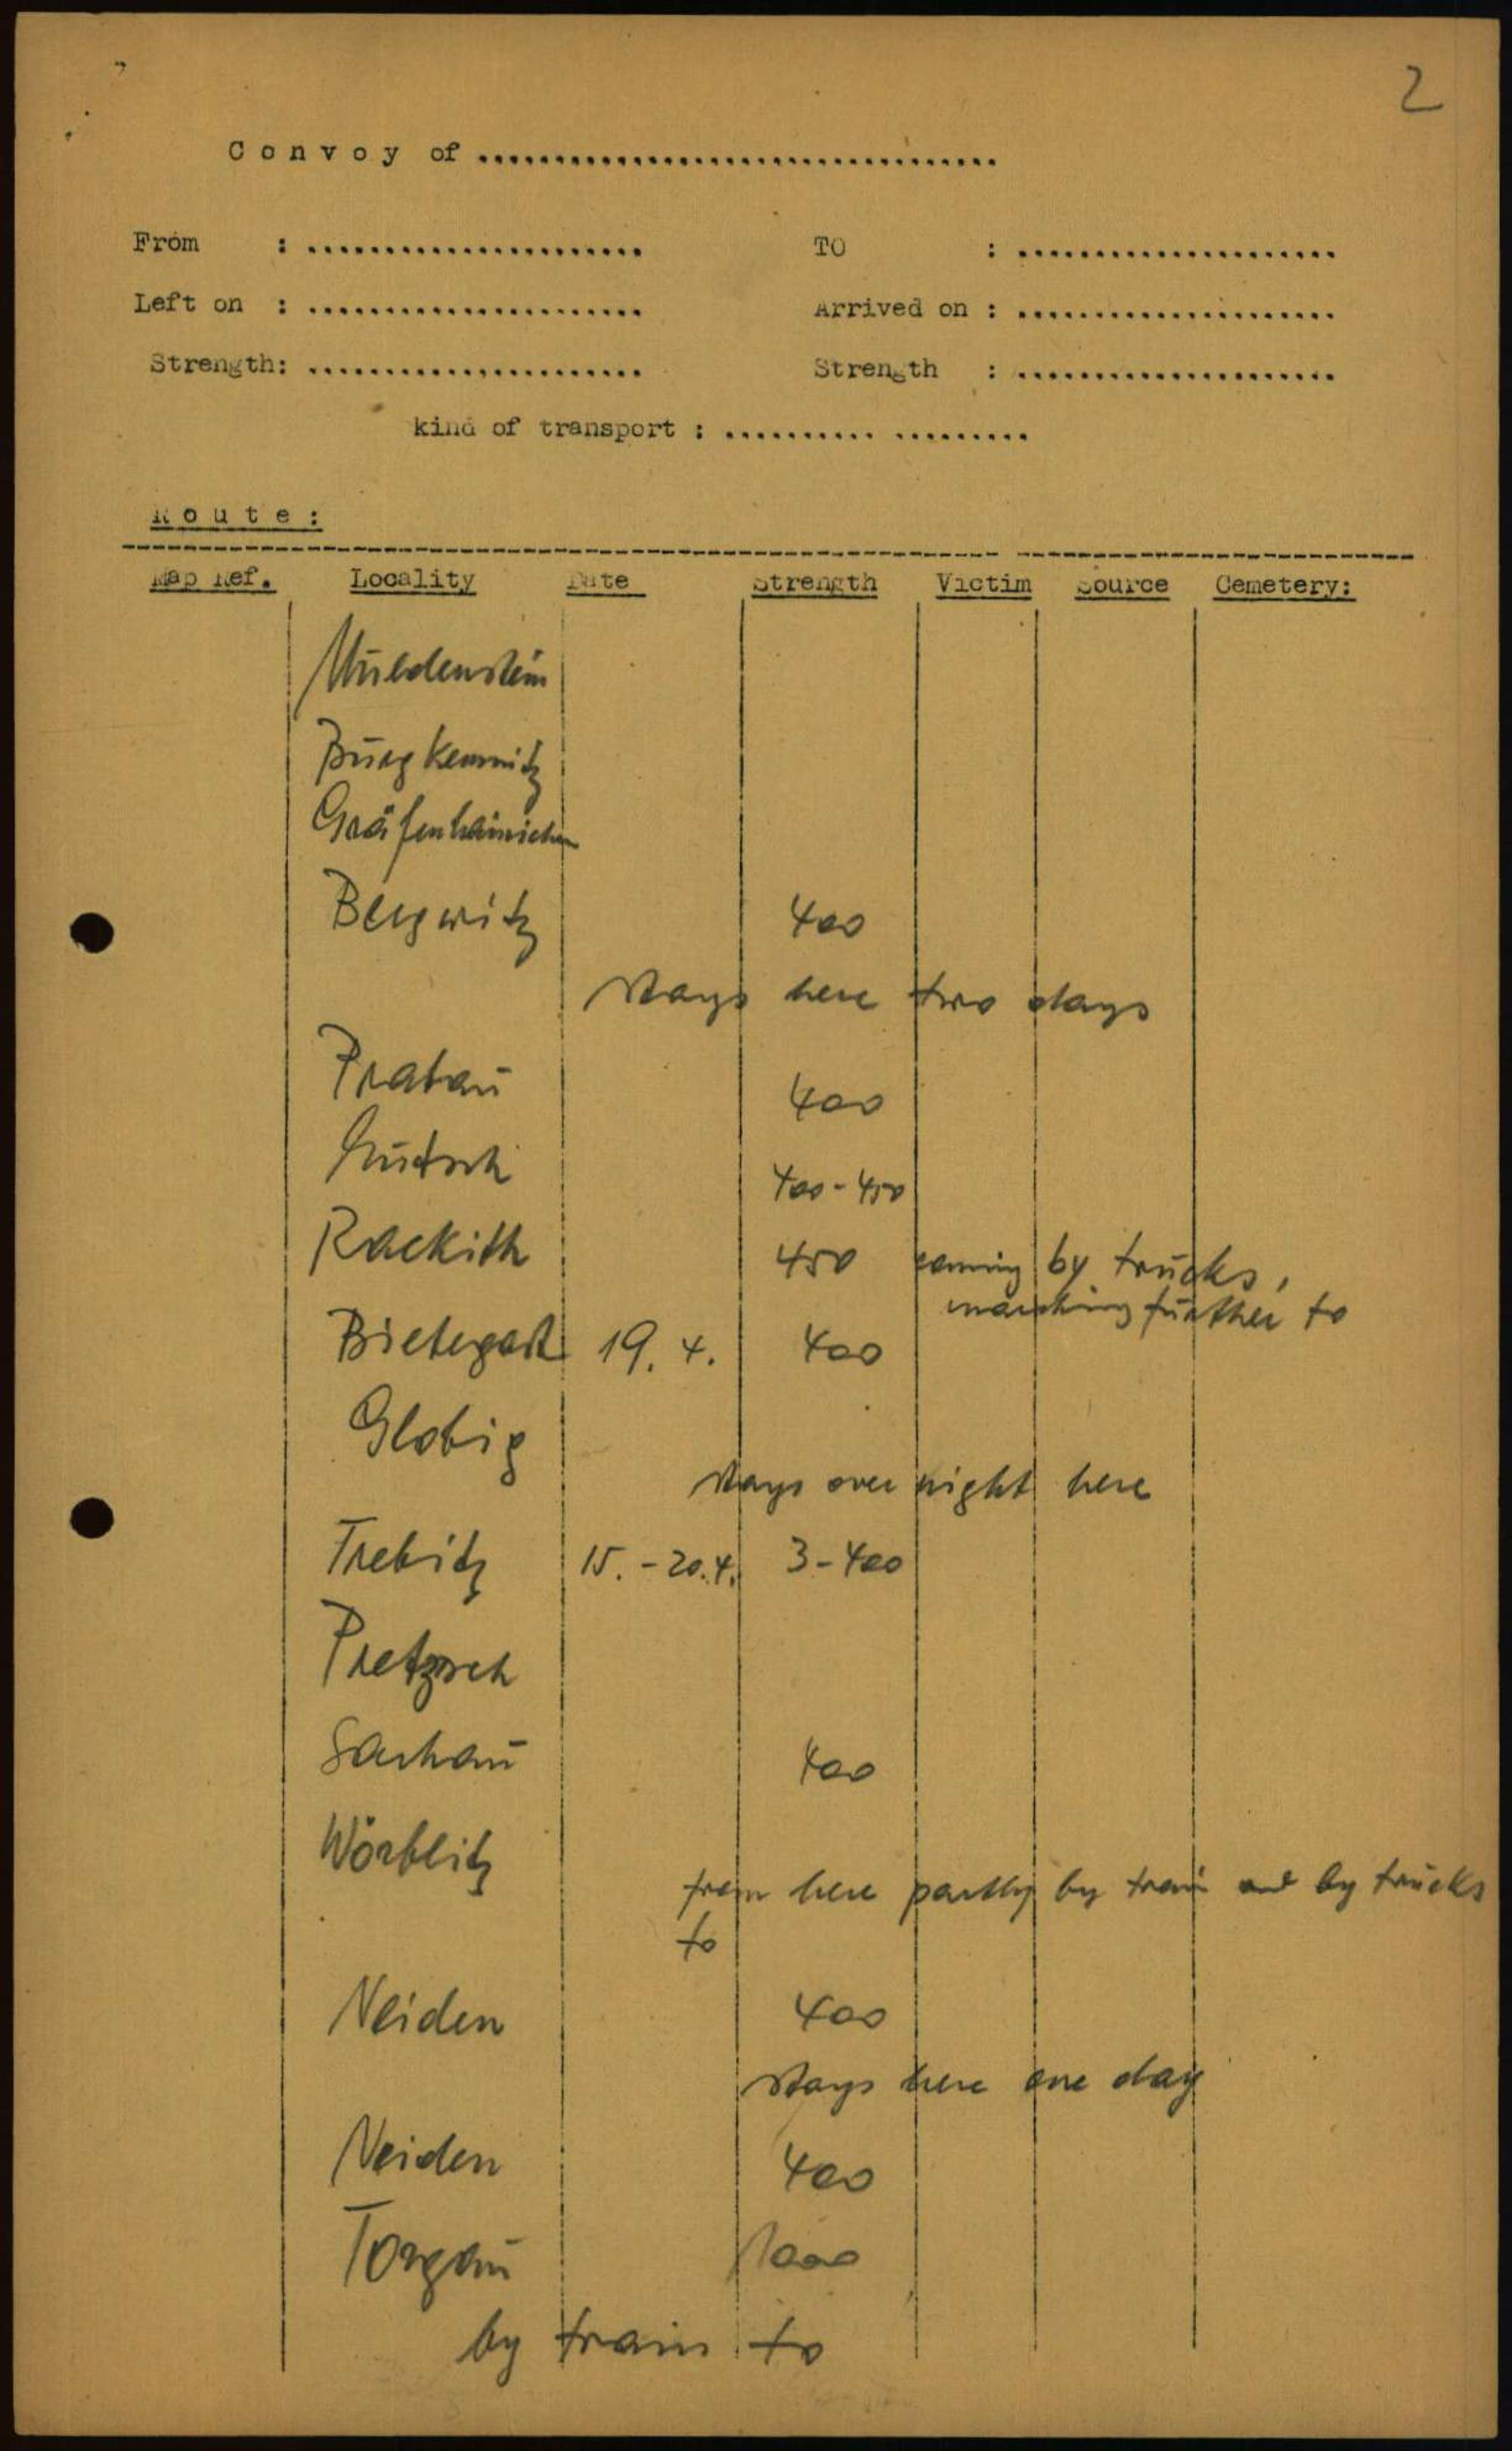 2
Convoy of ..................................
From : ...................... TO : .....................
Left on : ...................... Arrived on : .....................
Strength: ...................... Strength : .....................
kind of transport : .......... .........
Route:
Map Ref. Locality Date Strength Victim Source Cemetery:
Muldenstein
Burgkemnitz
Gräfenhainichen
Bergwitz 400
stays here two days
Pratau 400
400-450
Rackith 450 coming by trucks,
marching further to
Bietegast 19. 4. 400
Globig
stays over night here
Trebitz 15.-20.4. 3-400
Pretzsch
Sachau 400
Wörblitz
from here partly by train and by trucks
to
Neiden 400
stays here one day
Neiden 400
Torgau 1000
by train to